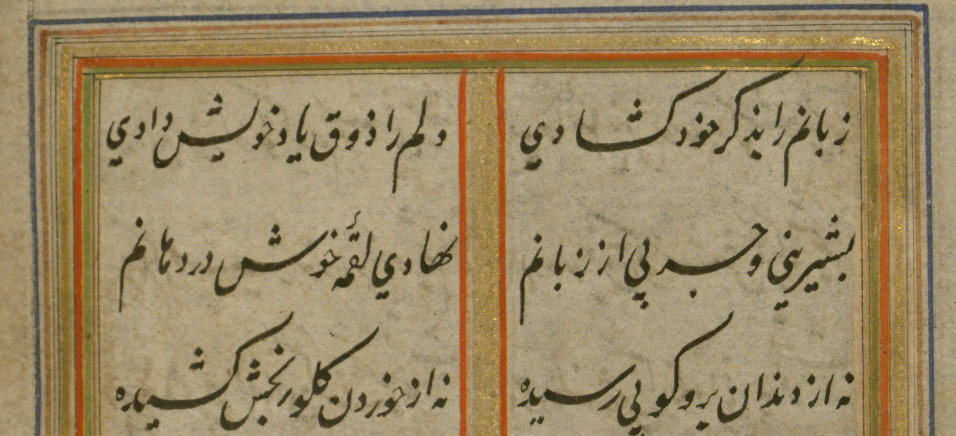 زبانم را بذکر خود کشادی
دلم را ذوق یاد خویش دادی
بشیرینی و چربی از زبانم
نهادی لقمهٔ خوش در دهانم
نه از دندان برو کوبی رسیده
نه از خوردن کلو رنجش کشیده